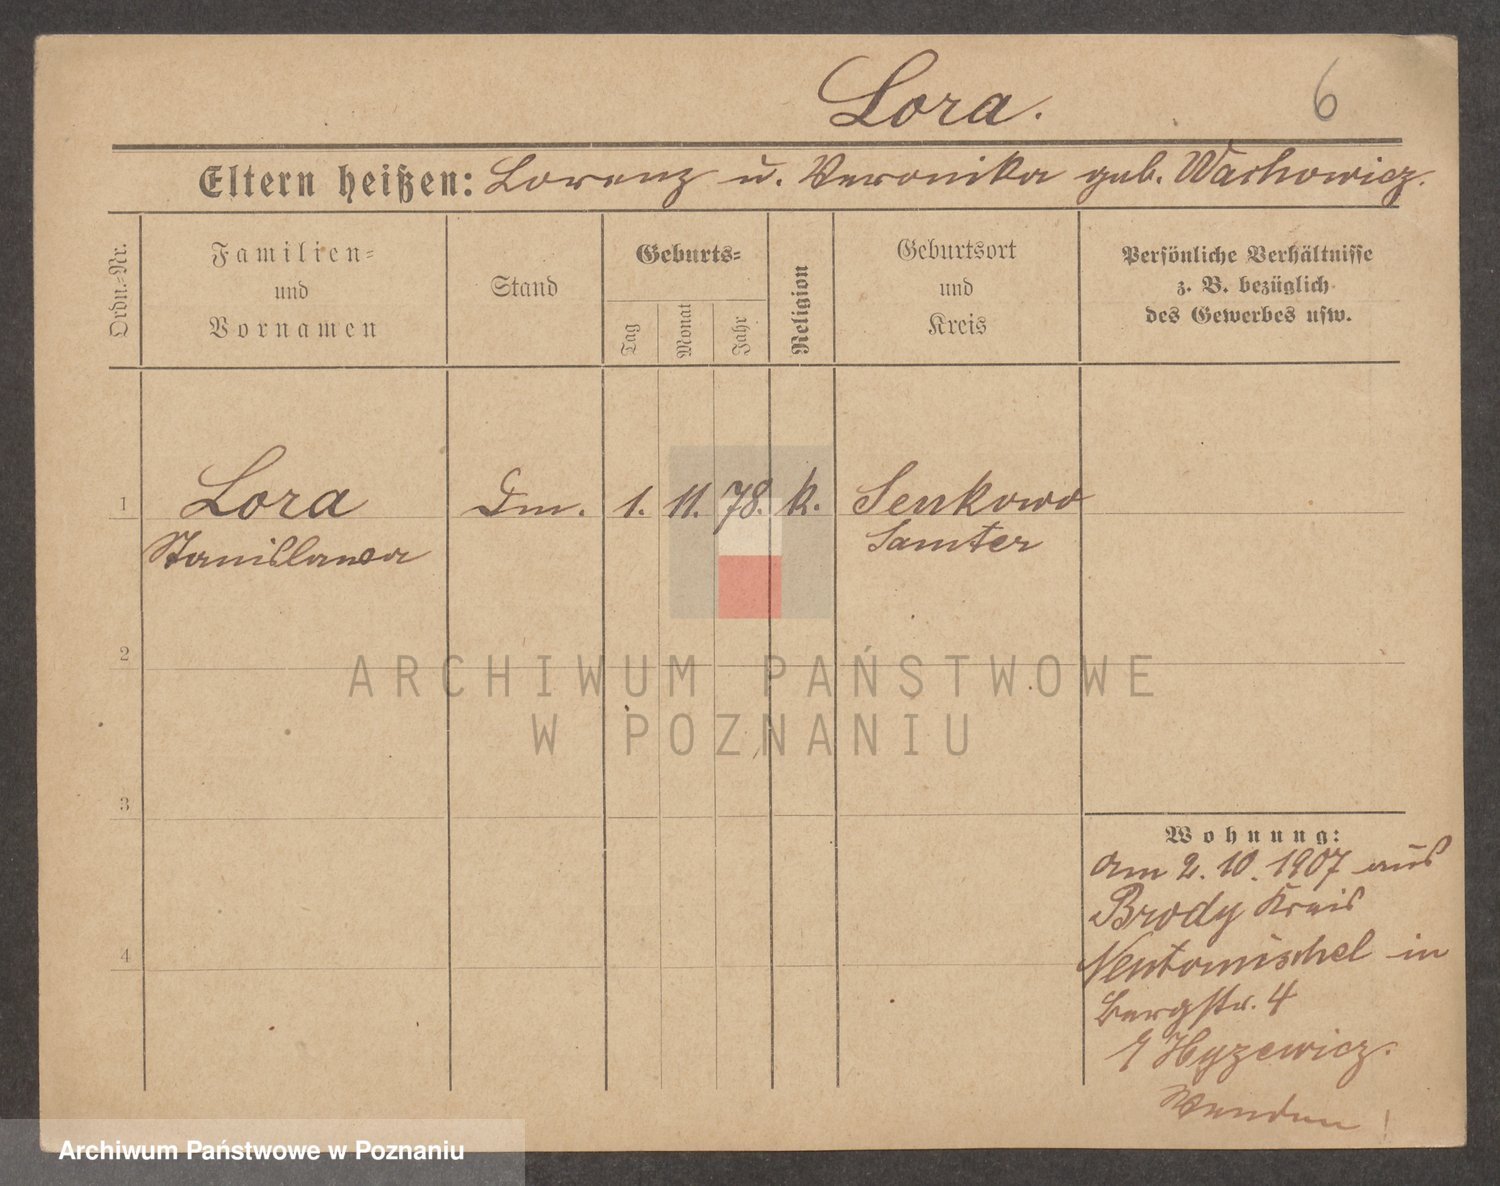 Lora.
6
Eltern heißen: Lorenz u. Veronika geb. Wachowicz.
Ordn.-Nr.
Familien-
und
Vornamen
Stand
Geburts-
Tag
Monat
Jahr
Religion
Geburtsort
und
Kreis
Persönliche Verhältnisse
z. B. bezüglich
des Gewerbes usw.
1 Lora Dm. 1. 11. 78. k. Senkowo
Stanislawa Samter
2
ARCHIWUM PAŃSTWOWE
W POZNANIU
3
Wohnung:
am 2. 10. 1907 aus
Brody Kreis
4
Neutomischel in
Bergstr. 4
Hyzewicz.
Wenden!
Archiwum Państwowe w Poznaniu